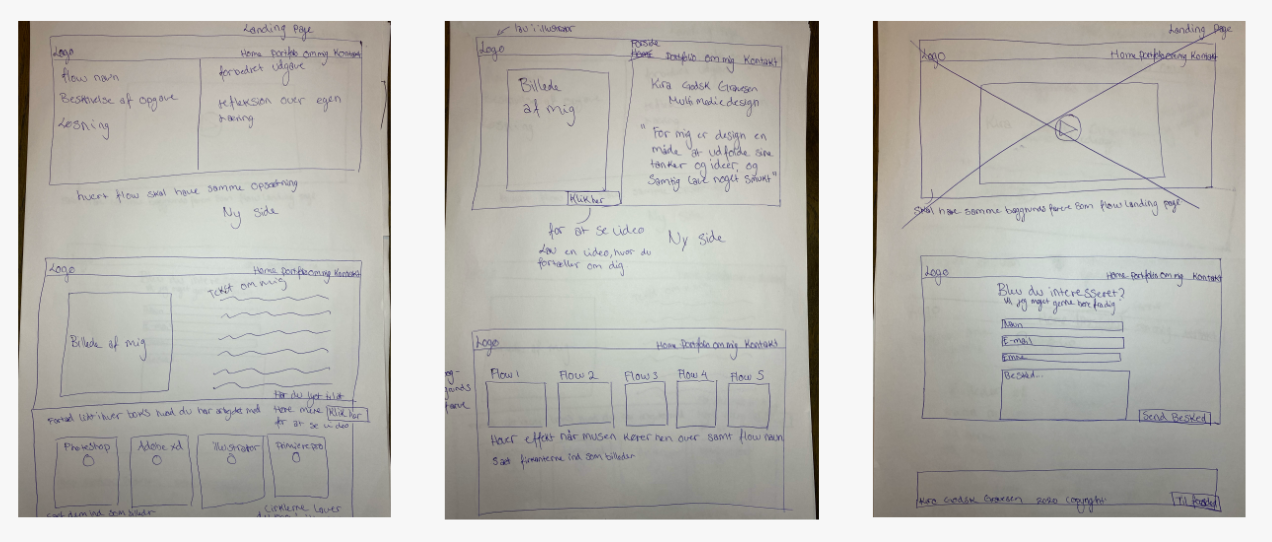 Landing Page
Logo
Home Portfolio om mig Kontakt
flow navn
Beskrivelse af opgave
Løsning
forbedret udgave
refleksion over egen
læring
hvert flow skal have samme opsætning
Ny side
Logo
Home Portfolio om mig Kontakt
Billede af mig
Tekst om mig
Har du lyst til at
Høre mere
Klik her
for at se video
Fortæl lidt i hver boks hvad du har arbejdet med
Photoshop
Adobe xd
Illustrator
Premiere pro
Sæt dem ind som billeder
Cirklerne laver
Lav i illustrator
Logo
Forside
Home Portfolio om mig Kontakt
Billede
af mig
Kira Godsk Gravesen
Multimediedesign
"For mig er design en
måde at udfolde sine
tanker og ideer, og
Samtidig lave noget smukt"
Klik her
for at se video
Lav en video, hvor du
fortæller om dig
Ny side
Logo
Home Portfolio om mig Kontakt
Flow 1
Flow 2
Flow 3
Flow 4
Flow 5
Hover effekt når musen kører hen over samt flow navn
Sæt firkanterne ind som billeder
Landing Page
Logo
Home Portfolio om mig Kontakt
Skal have samme baggrunds farve som flow landing page
Logo
Home Portfolio om mig Kontakt
Blev du interesseret?
Vil jeg meget gerne høre fra dig
Navn
E-mail
Emne
Besked...
Send Besked
Kira Godsk Gravesen 2020 Copyright